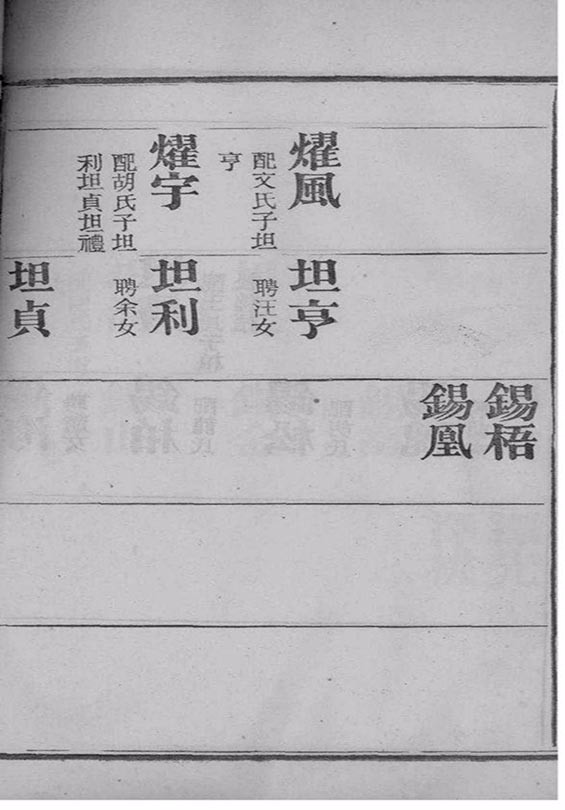 燿風
配文氏子坦
亨
燿宇
配胡氏子坦
利坦貞坦禮
坦亨
聘汪女
坦利
聘余女
坦貞
錫梧
錫凰